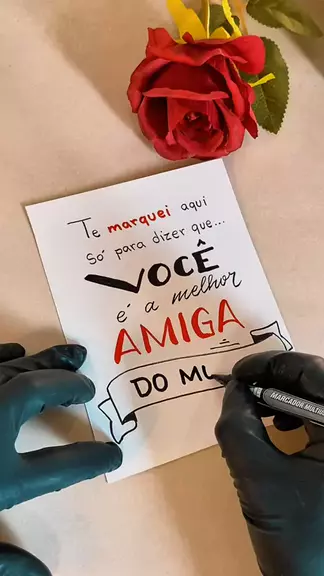 Te marquei aqui
Só para dizer que...
VOCÊ
é a melhor
AMIGA
DO MU
MARCADOR MULTIUS